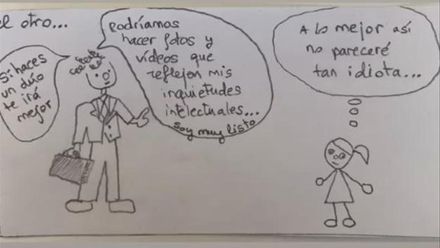 el otro...
Podríamos
hacer fotos y
vídeos que
reflejen mis
inquietudes
intelectuales...
soy muy listo
Si haces
un dúo
te irá
mejor
A lo mejor así
no pareceré
tan idiota...